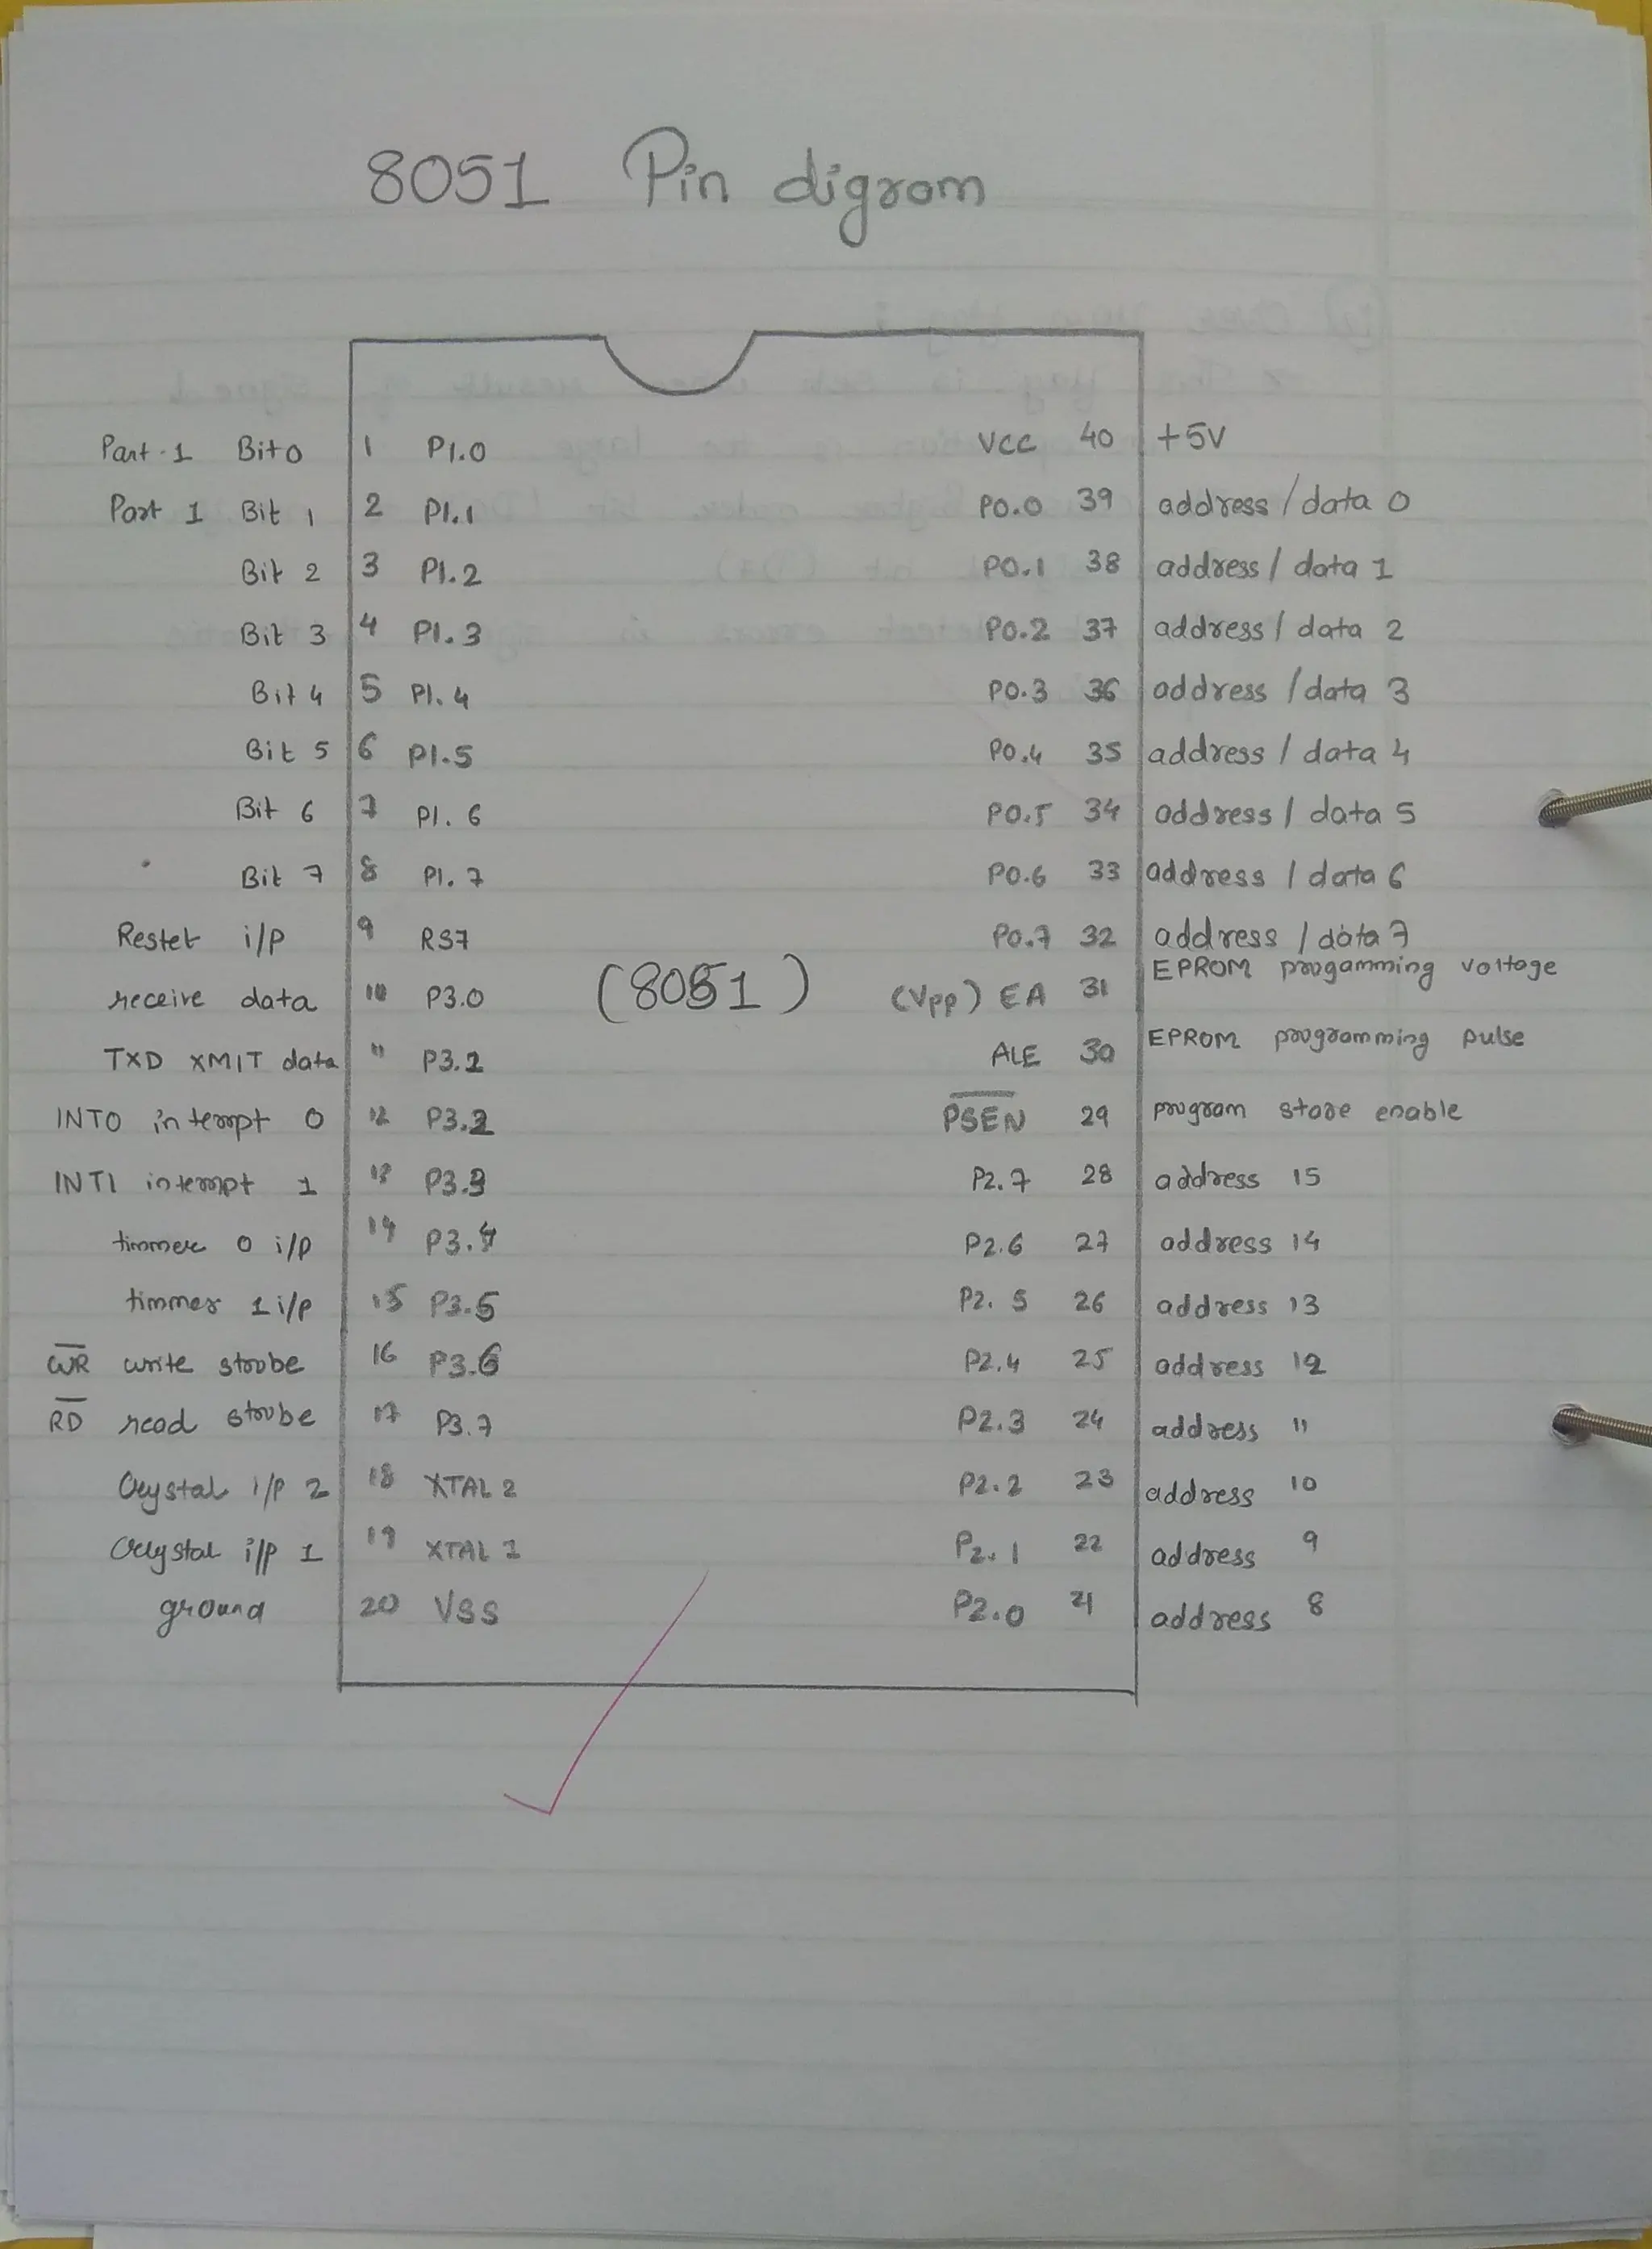 8051 Pin digrom
Part-1 Bit0 1 P1.0 VCC 40 +5V
Part 1 Bit 1 2 P1.1 P0.0 39 address/data 0
Bit 2 3 P1.2 P0.1 38 address/ data 1
Bit 3 4 P1.3 P0.2 37 address/ data 2
Bit 4 5 P1.4 P0.3 36 address /data 3
Bit 5 6 P1.5 P0.4 35 address / data 4
Bit 6 7 P1.6 P0.5 34 address / data 5
Bit 7 8 P1.7 P0.6 33 address / data 6
Restet i/p 9 RS7 P0.7 32 address / data 7
receive data 10 P3.0 (8051) (Vpp) EA 31 EPROM progamming voltage
TXD XMIT data 11 P3.1 ALE 30 EPROM programming pulse
INT0 interrpt 0 12 P3.2 P̅S̅E̅N̅ 29 program store enable
INT1 interrpt 1 13 P3.3 P2.7 28 address 15
timmer 0 i/p 14 P3.4 P2.6 27 address 14
timmer 1 i/p 15 P3.5 P2.5 26 address 13
W̅R̅ write strobe 16 P3.6 P2.4 25 address 12
R̅D̅ read strobe 17 P3.7 P2.3 24 address 11
Crystal i/p 2 18 XTAL 2 P2.2 23 address 10
Crystal i/p 1 19 XTAL 1 P2.1 22 address 9
ground 20 VSS P2.0 21 address 8